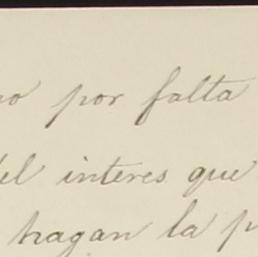 por falta
del interes que
hagan la